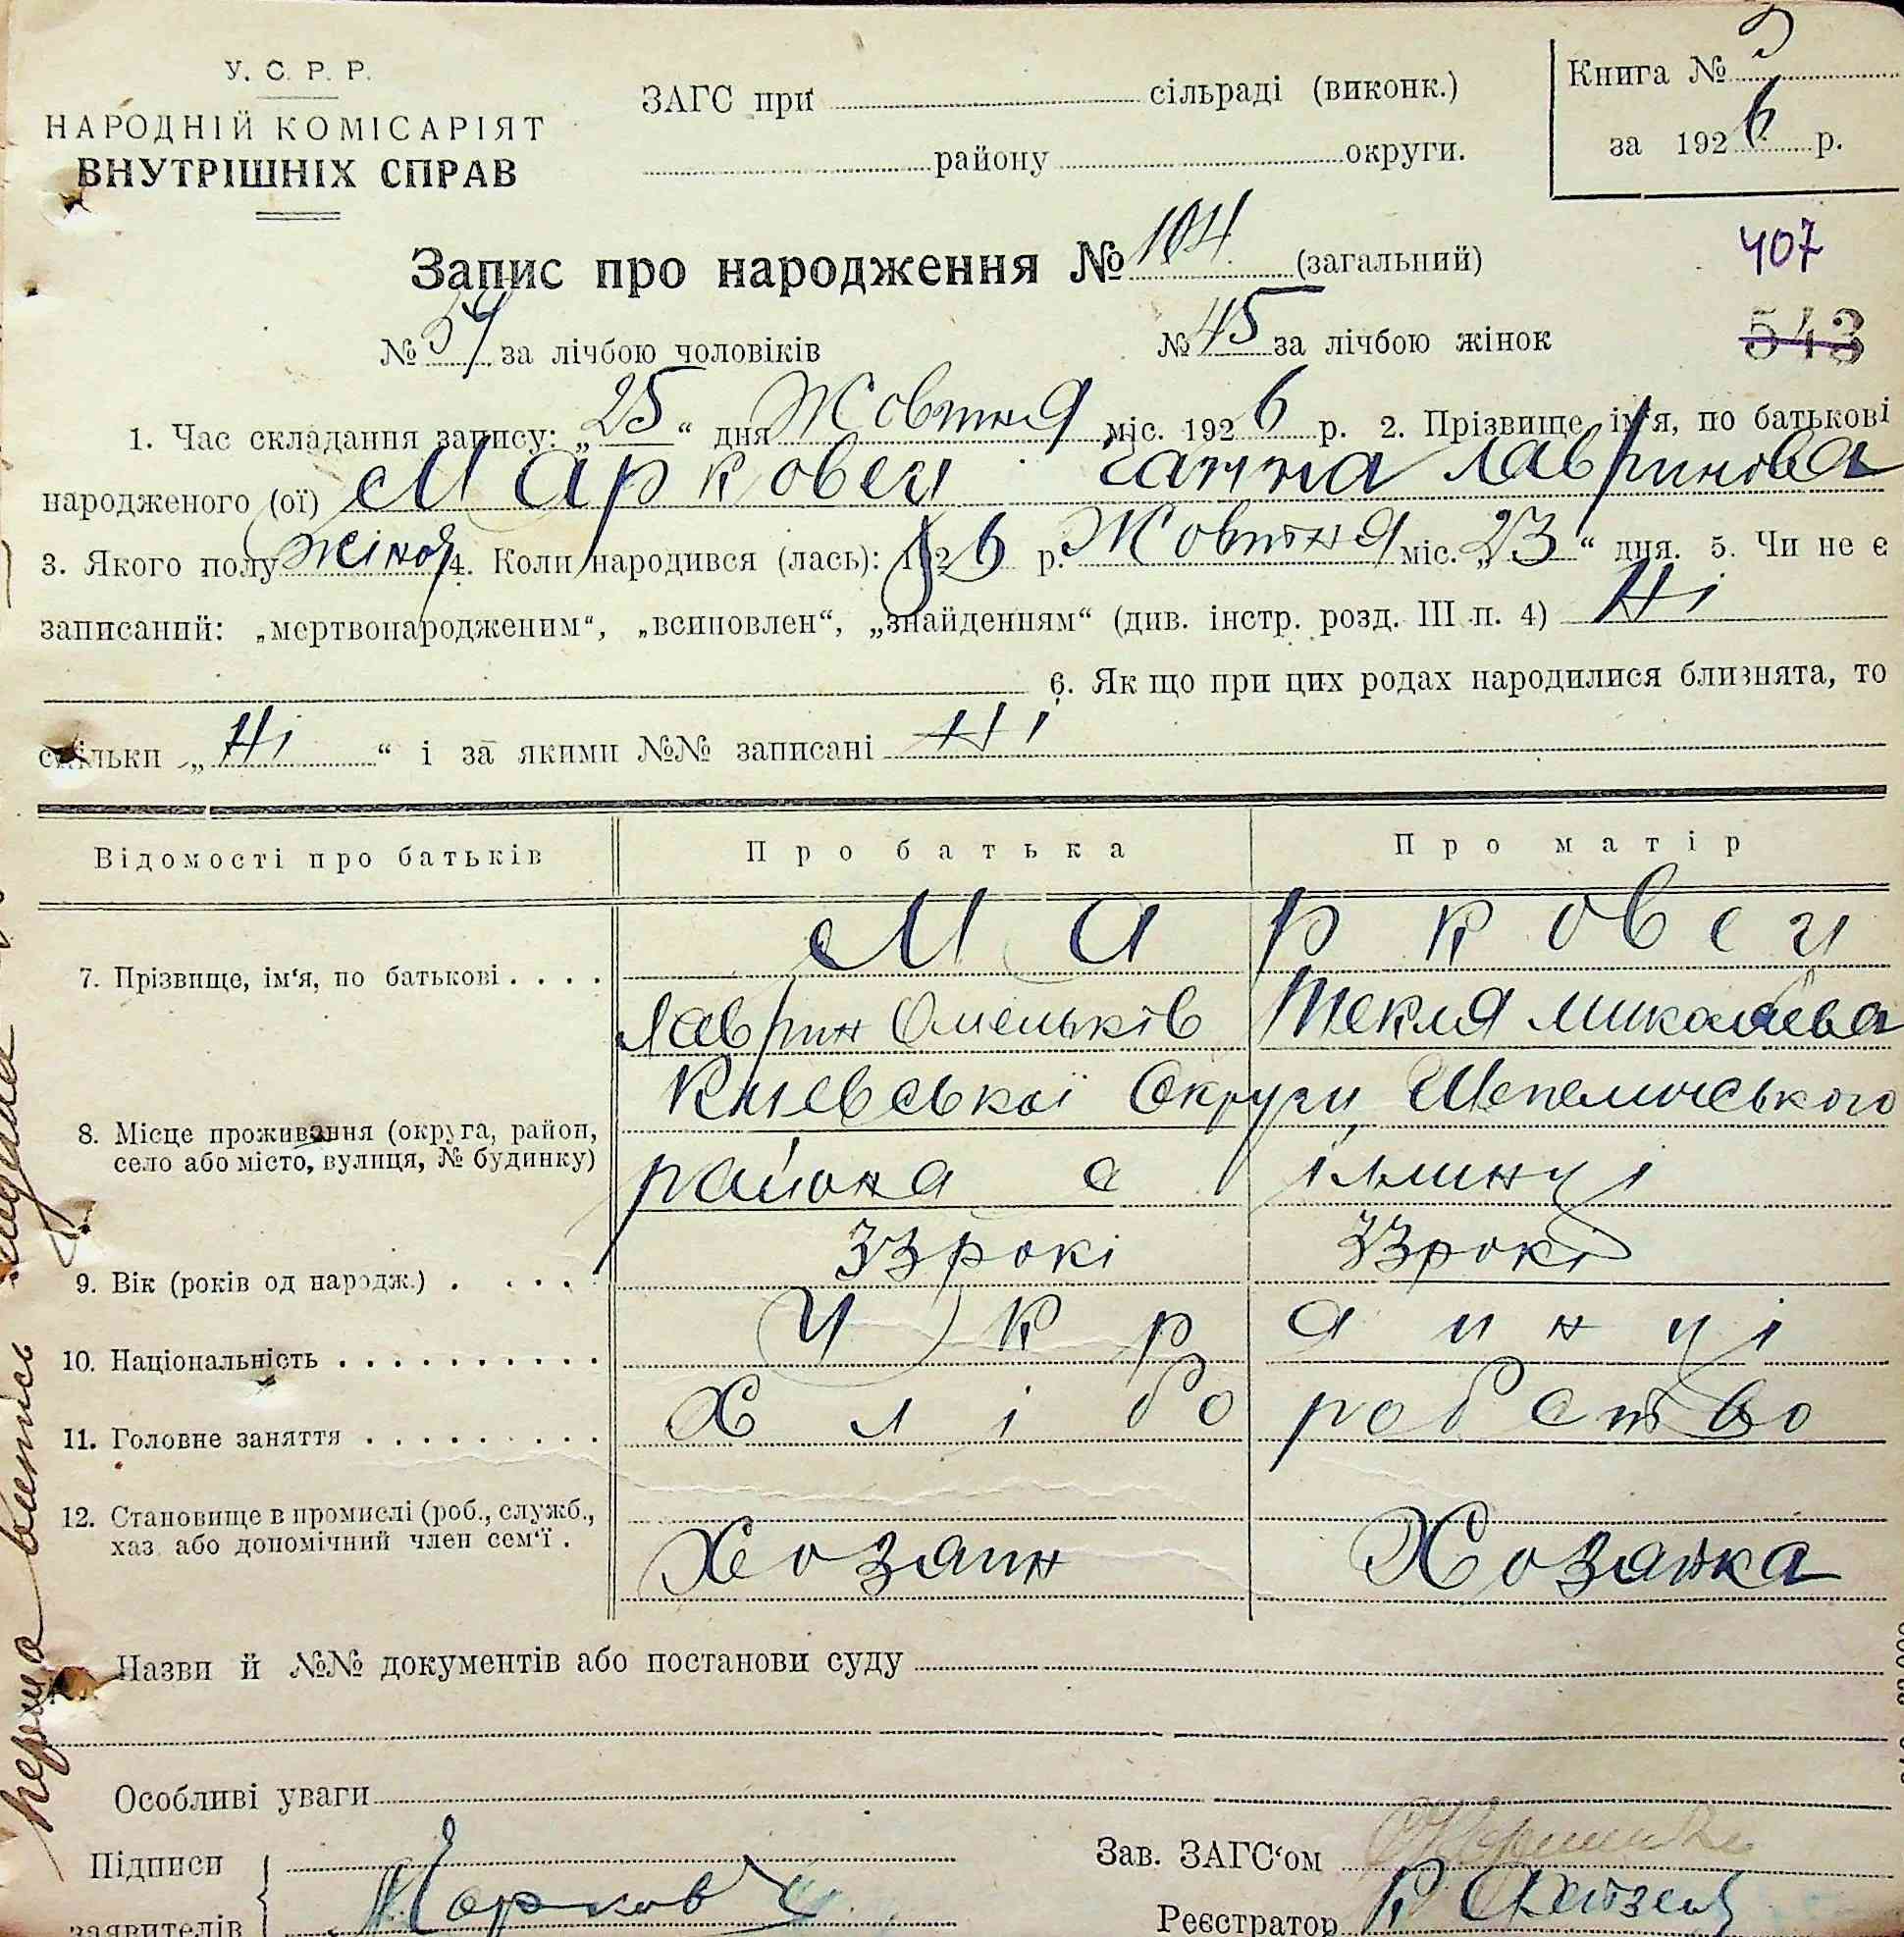 У. С. Р. Р.
НАРОДНІЙ КОМІСАРІЯТ
ВНУТРІШНІХ СПРАВ
ЗАГС при сільраді (виконк.)
району округи.
Книга №
за 1926 р.
Запис про народження № 104 (загальний)
407
№ 59 за лічбою чоловіків № 45 за лічбою жінок
543
1. Час складання запису: „25“ дня Жовтня міс. 1926 р. 2. Прізвище ім'я, по батькові
народженого (ої) Марковец Ганна Лавринова
3. Якого полу жіноч 4. Коли народився (лась): 1926 р. Жовтня міс. „23“ дня. 5. Чи не є
записаний: „мертвонародженим“, „всиновлен“, „знайденням“ (див. інстр. розд. III п. 4) Ні
6. Як що при цих родах народилися близнята, то
скільки „Ні“ і за якими №№ записані Ні
Відомості про батьків Про батька Про матір
7. Прізвище, ім‘я, по батькові . . . . Марковец
Лаврин Омельків Текля Миколаєва
Київської Округи, Шепелицького
8. Місце проживання (округа, район,
село або місто, вулиця, № будинку)
района с ілминці
9. Вік (років од народж.) . . . . . 33 рокі 33 рокі
10. Національність . . . . . . . . . . . Украинці
11. Головне заняття . . . . . . . . . . Хліборобство
12. Становище в промислі (роб., служб.,
хаз. або допомічний член сем‘ї . Хозяин Хозяйка
Назви й №№ документів або постанови суду
Особливі уваги
Підписи
заявителів
Зав. ЗАГС‘ом
Реєстратор